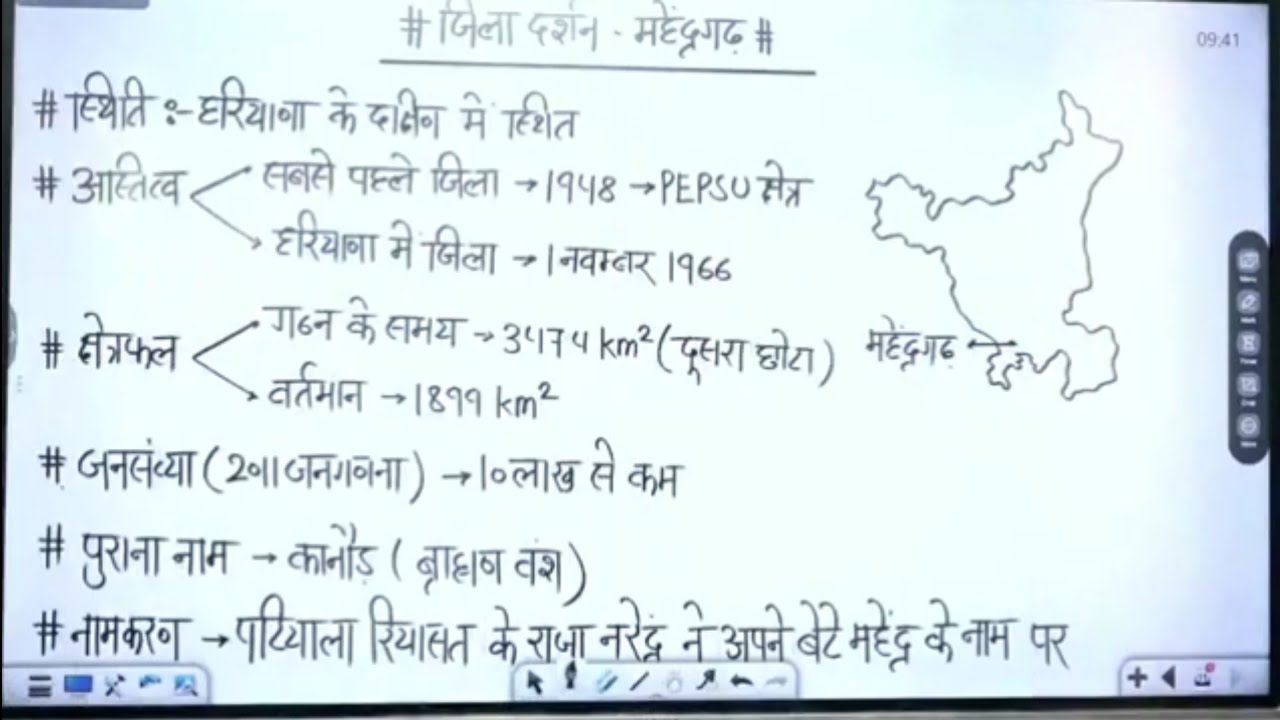 # जिला दर्शन - महेंद्रगढ़ #
09:41
# स्थिति :- हरियाणा के दक्षिण में स्थित
# अस्तित्व
सबसे पहले जिला → 1948 → PEPSU क्षेत्र
हरियाणा में जिला → 1 नवम्बर 1966
# क्षेत्रफल
गठन के समय → 3474 km² (दूसरा छोटा)
वर्तमान → 1899 km²
महेंद्रगढ़
# जनसंख्या (2011 जनगणना) → 10 लाख से कम
# पुराना नाम → कानौड़ (ब्राह्मण वंश)
# नामकरण → पटियाला रियासत के राजा नरेंद्र ने अपने बेटे महेंद्र के नाम पर